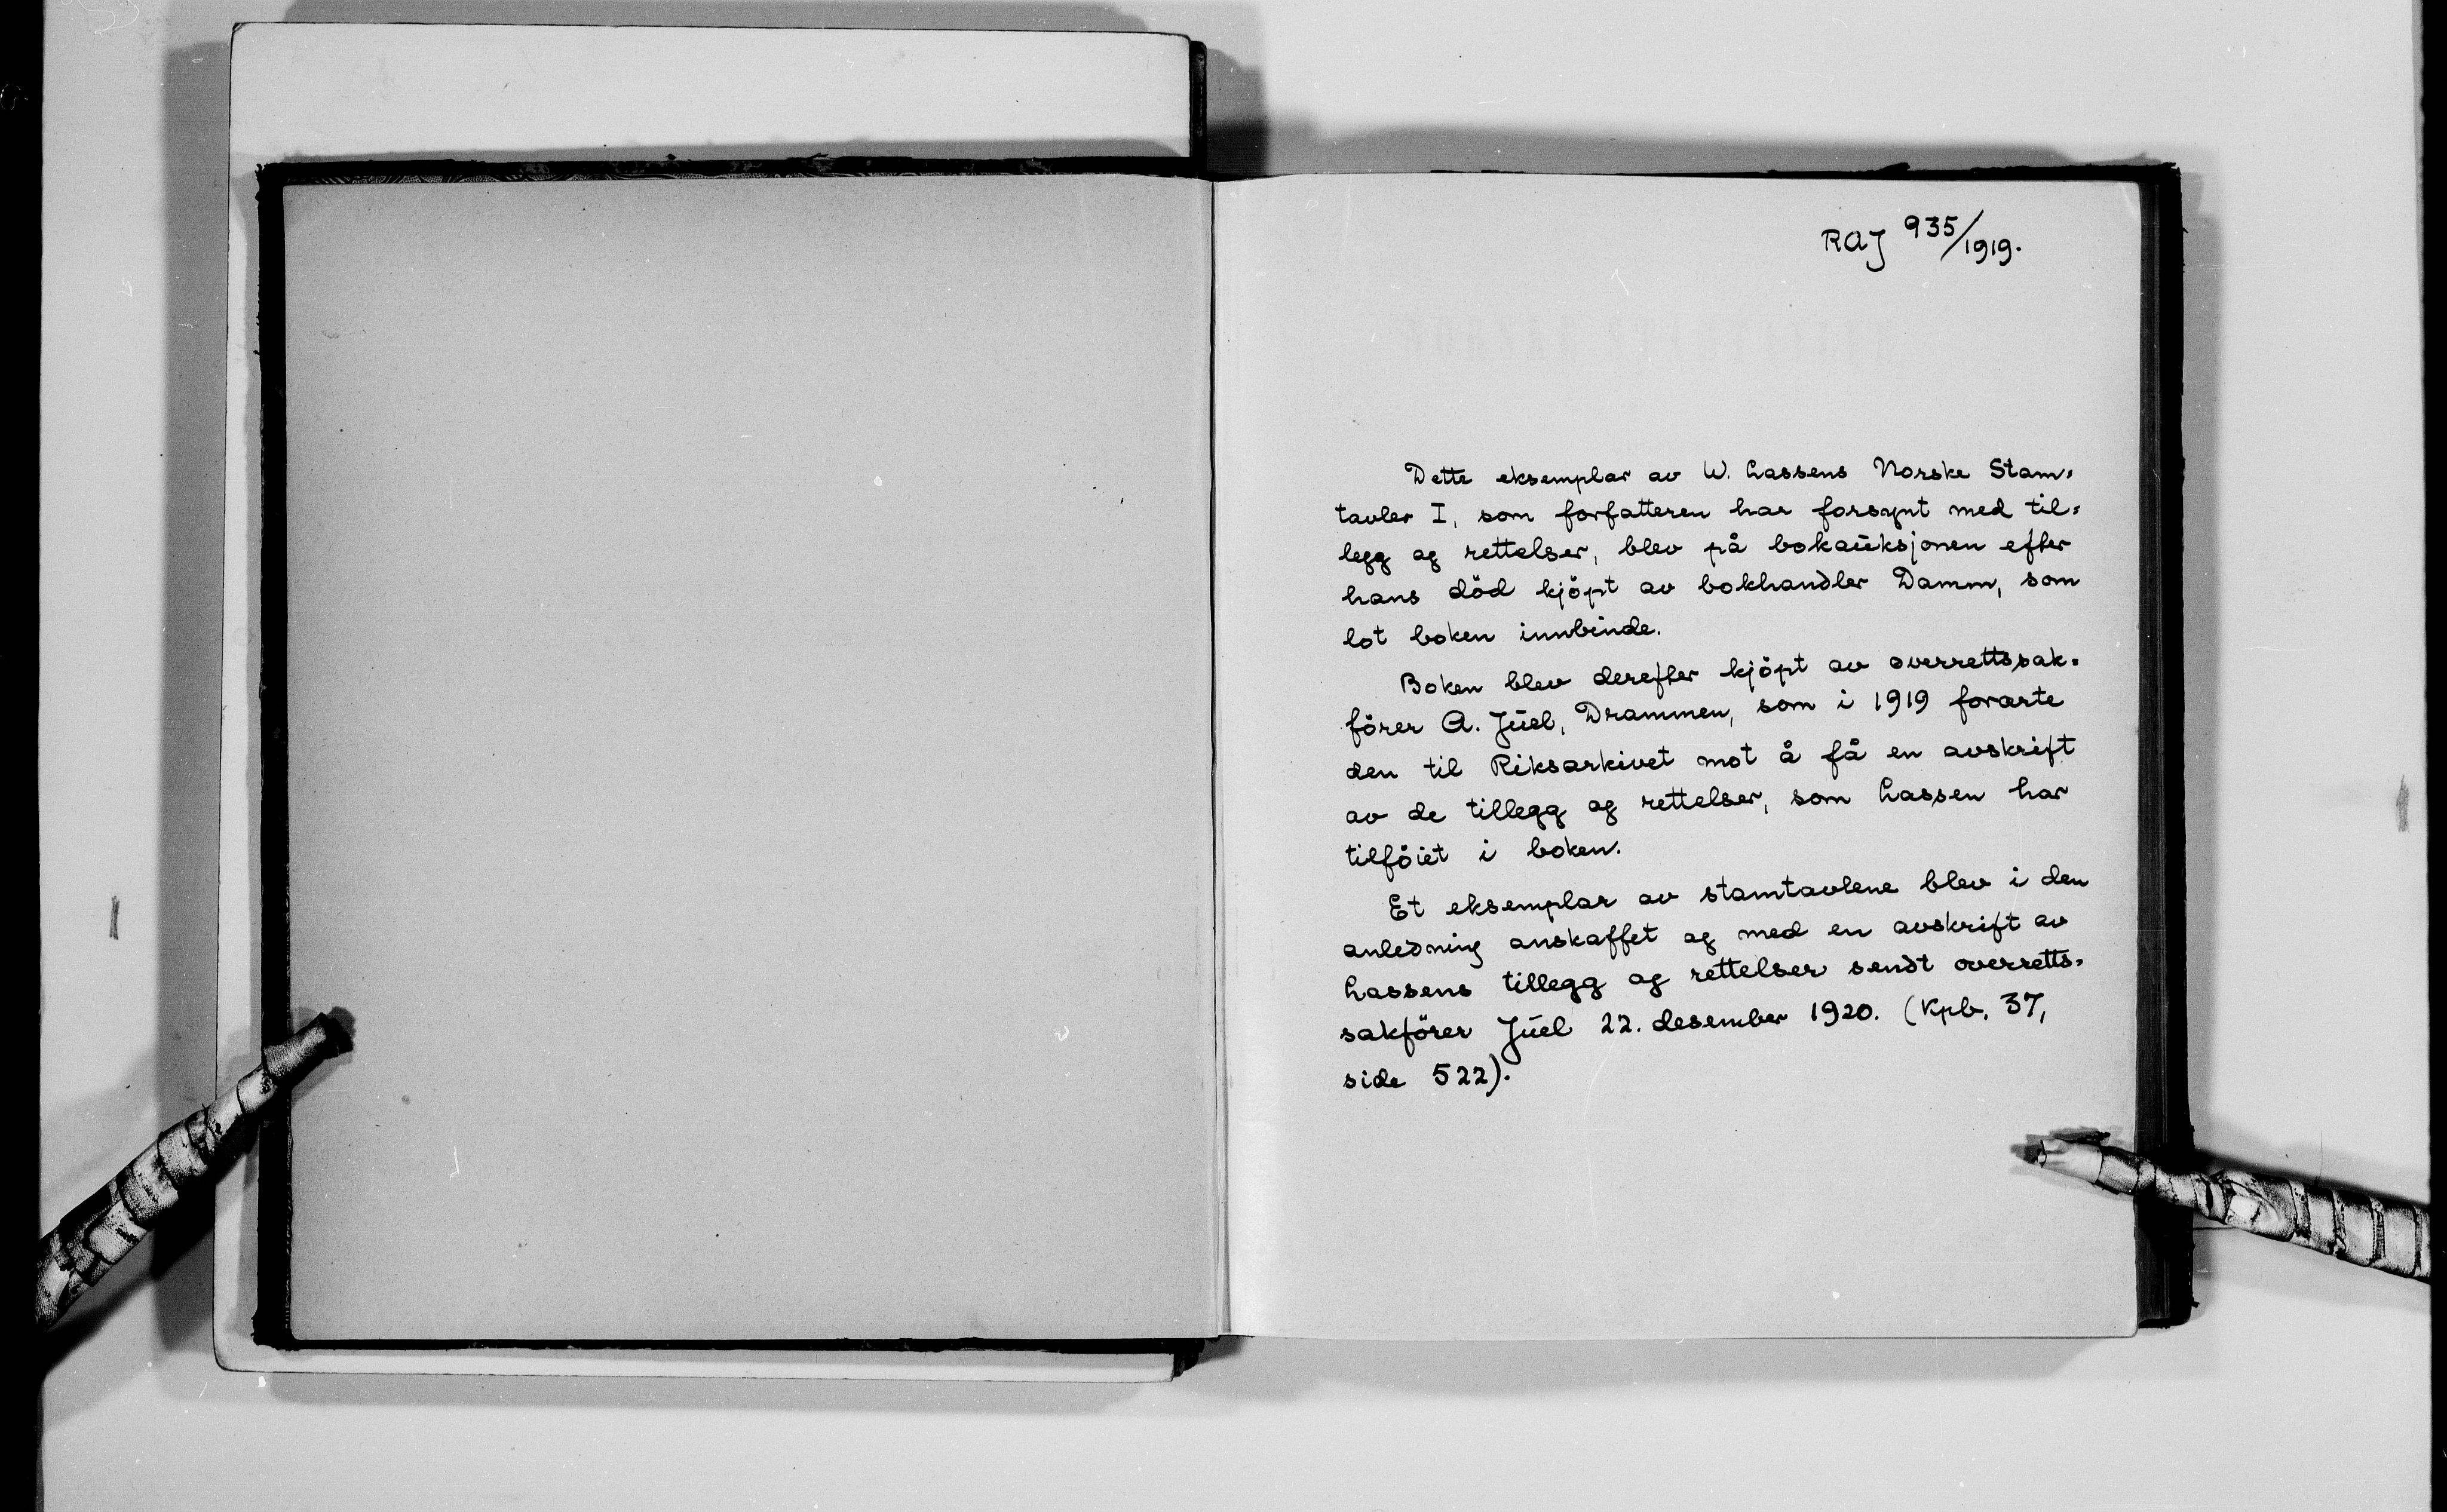 RAJ 935/1919.
Dette eksemplar av W. Lassens Norske Stam=
tavler I, som forfatteren har forsynt med til=
legg og rettelser, blev på bokauksjonen efter
hans död kjöpt av bokhandler Damm, som
lot boken innbinde.
Boken blev derefter kjöpt av overrettssak=
förer A. Juel, Drammen, som i 1919 forærte
den til Riksarkivet mot å få en avskrift
av de tillegg og rettelser, som Lassen har
tilföiet i boken.
Et eksemplar av stamtavlene blev i den
anledning anskaffet og med en avskrift av
Lassens tillegg og rettelser sendt overretts=
sakförer Juel 22. desember 1920. (Kpb. 37,
side 522).